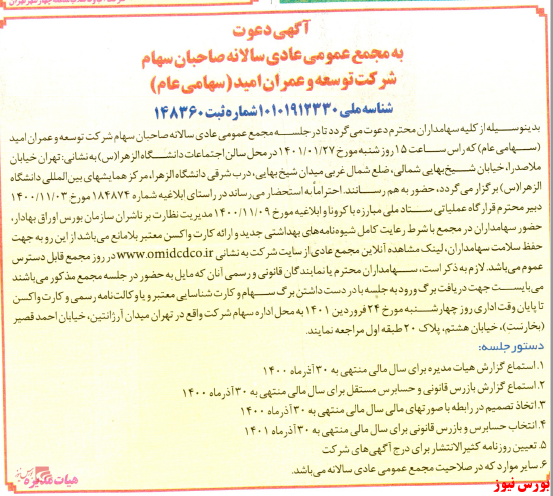 آگهی دعوت
به مجمع عمومی عادی سالانه صاحبان سهام
شرکت توسعه و عمران امید (سهامی عام)
شناسه ملی ۱۰۱۰۱۹۱۲۳۳۰ شماره ثبت ۱۴۸۳۶۰
بدینوسیله از کلیه سهامداران محترم دعوت می گردد تا در جلسه مجمع عمومی عادی سالانه صاحبان سهام شرکت توسعه و عمران امید
(سهامی عام) که راس ساعت ۱۵ روز شنبه مورخ ۱۴۰۱/۰۱/۲۷ در محل سالن اجتماعات دانشگاه الزهرا(س) به نشانی: تهران خیابان
ملاصدرا، خیابان شیخ بهایی شمالی، ضلع شمال غربی میدان شیخ بهایی، درب شرقی دانشگاه الزهرا، مرکز همایشهای بین المللی دانشگاه
الزهرا(س) برگزار می گردد، حضور به هم رسانند. احتراماً به استحضار می رساند در راستای ابلاغیه شماره ۱۸۴۸۷۴ مورخ ۱۴۰۰/۱۱/۰۳
دبیر محترم قرارگاه عملیاتی ستاد ملی مبارزه با کرونا و ابلاغیه مورخ ۱۴۰۰/۱۱/۰۹ مدیریت نظارت بر ناشران سازمان بورس اوراق بهادار،
حضور سهامداران در مجمع با شرط رعایت کامل شیوه نامه های بهداشتی جدید و ارائه کارت واکسن معتبر بلامانع می باشد از این رو به جهت
حفظ سلامت سهامداران، لینک مشاهده آنلاین مجمع عادی از سایت شرکت به نشانی www.omidcdco.ir در روز مجمع قابل دسترس
عموم می باشد. لازم به ذکر است، سهامداران محترم یا نمایندگان قانونی و رسمی آنان که مایل به حضور در جلسه مجمع مذکور می باشند
می بایست جهت دریافت برگ ورود به جلسه با در دست داشتن برگ سهام و کارت شناسایی معتبر و یا وکالت نامه رسمی و کارت واکسن
تا پایان وقت اداری روز چهارشنبه مورخ ۲۴ فروردین ۱۴۰۱ به محل اداره سهام شرکت واقع در تهران میدان آرژانتین، خیابان احمد قصیر
(بخارست)، خیابان هشتم، پلاک ۲۰ طبقه اول مراجعه نمایند.
دستور جلسه:
۱. استماع گزارش هیات مدیره برای سال مالی منتهی به ۳۰ آذر ماه ۱۴۰۰
۲. استماع گزارش بازرس قانونی و حسابرس مستقل برای سال مالی منتهی به ۳۰ آذر ماه ۱۴۰۰
۳. اتخاذ تصمیم در رابطه با صورتهای مالی سال مالی منتهی به ۳۰ آذر ماه ۱۴۰۰
۴. انتخاب حسابرس و بازرس قانونی برای سال مالی منتهی به ۳۰ آذر ماه ۱۴۰۱
۵. تعیین روزنامه کثیرالانتشار برای درج آگهی های شرکت
۶. سایر موارد که در صلاحیت مجمع عمومی عادی سالانه می باشد.
هیات مدیره
بورس نیوز